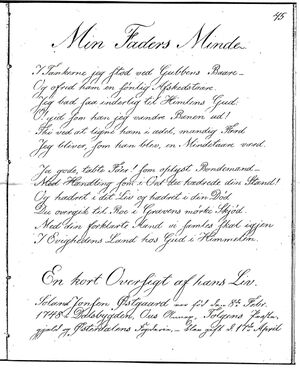 45
Min Faders Minde
I Tankerne jeg stod ved Gubbens Baare
Og ofred ham en sønlig Afskedstaare
Jeg bad saa inderlig til Himlens Gud:
O gid som han jeg vandre Banen ud!
Thi ved at ligne ham i ædel, mandig Færd
Jeg bliver, som han blev, en Mindetaare værd.
Ja gode, tabte Fa'er! som oplyst Bondemand
Med Handling som i Ord du hædrede din Stand!
Og hædret i dit Liv og hædret i din Død
Du overgik til Roe i Gravens mørke Skjød.
Med din forklarte Aand vi samles skal igjen
I Evighedens Land hos Gud i Himmelen.
En kort Oversigt af hans Liv.
Jonsen Østgaard var fød den 8de Febr.
1748 Dalsbygden, Os Tolgens
gjeld og Østerdalens Fogderie, blev gift d. 17de April